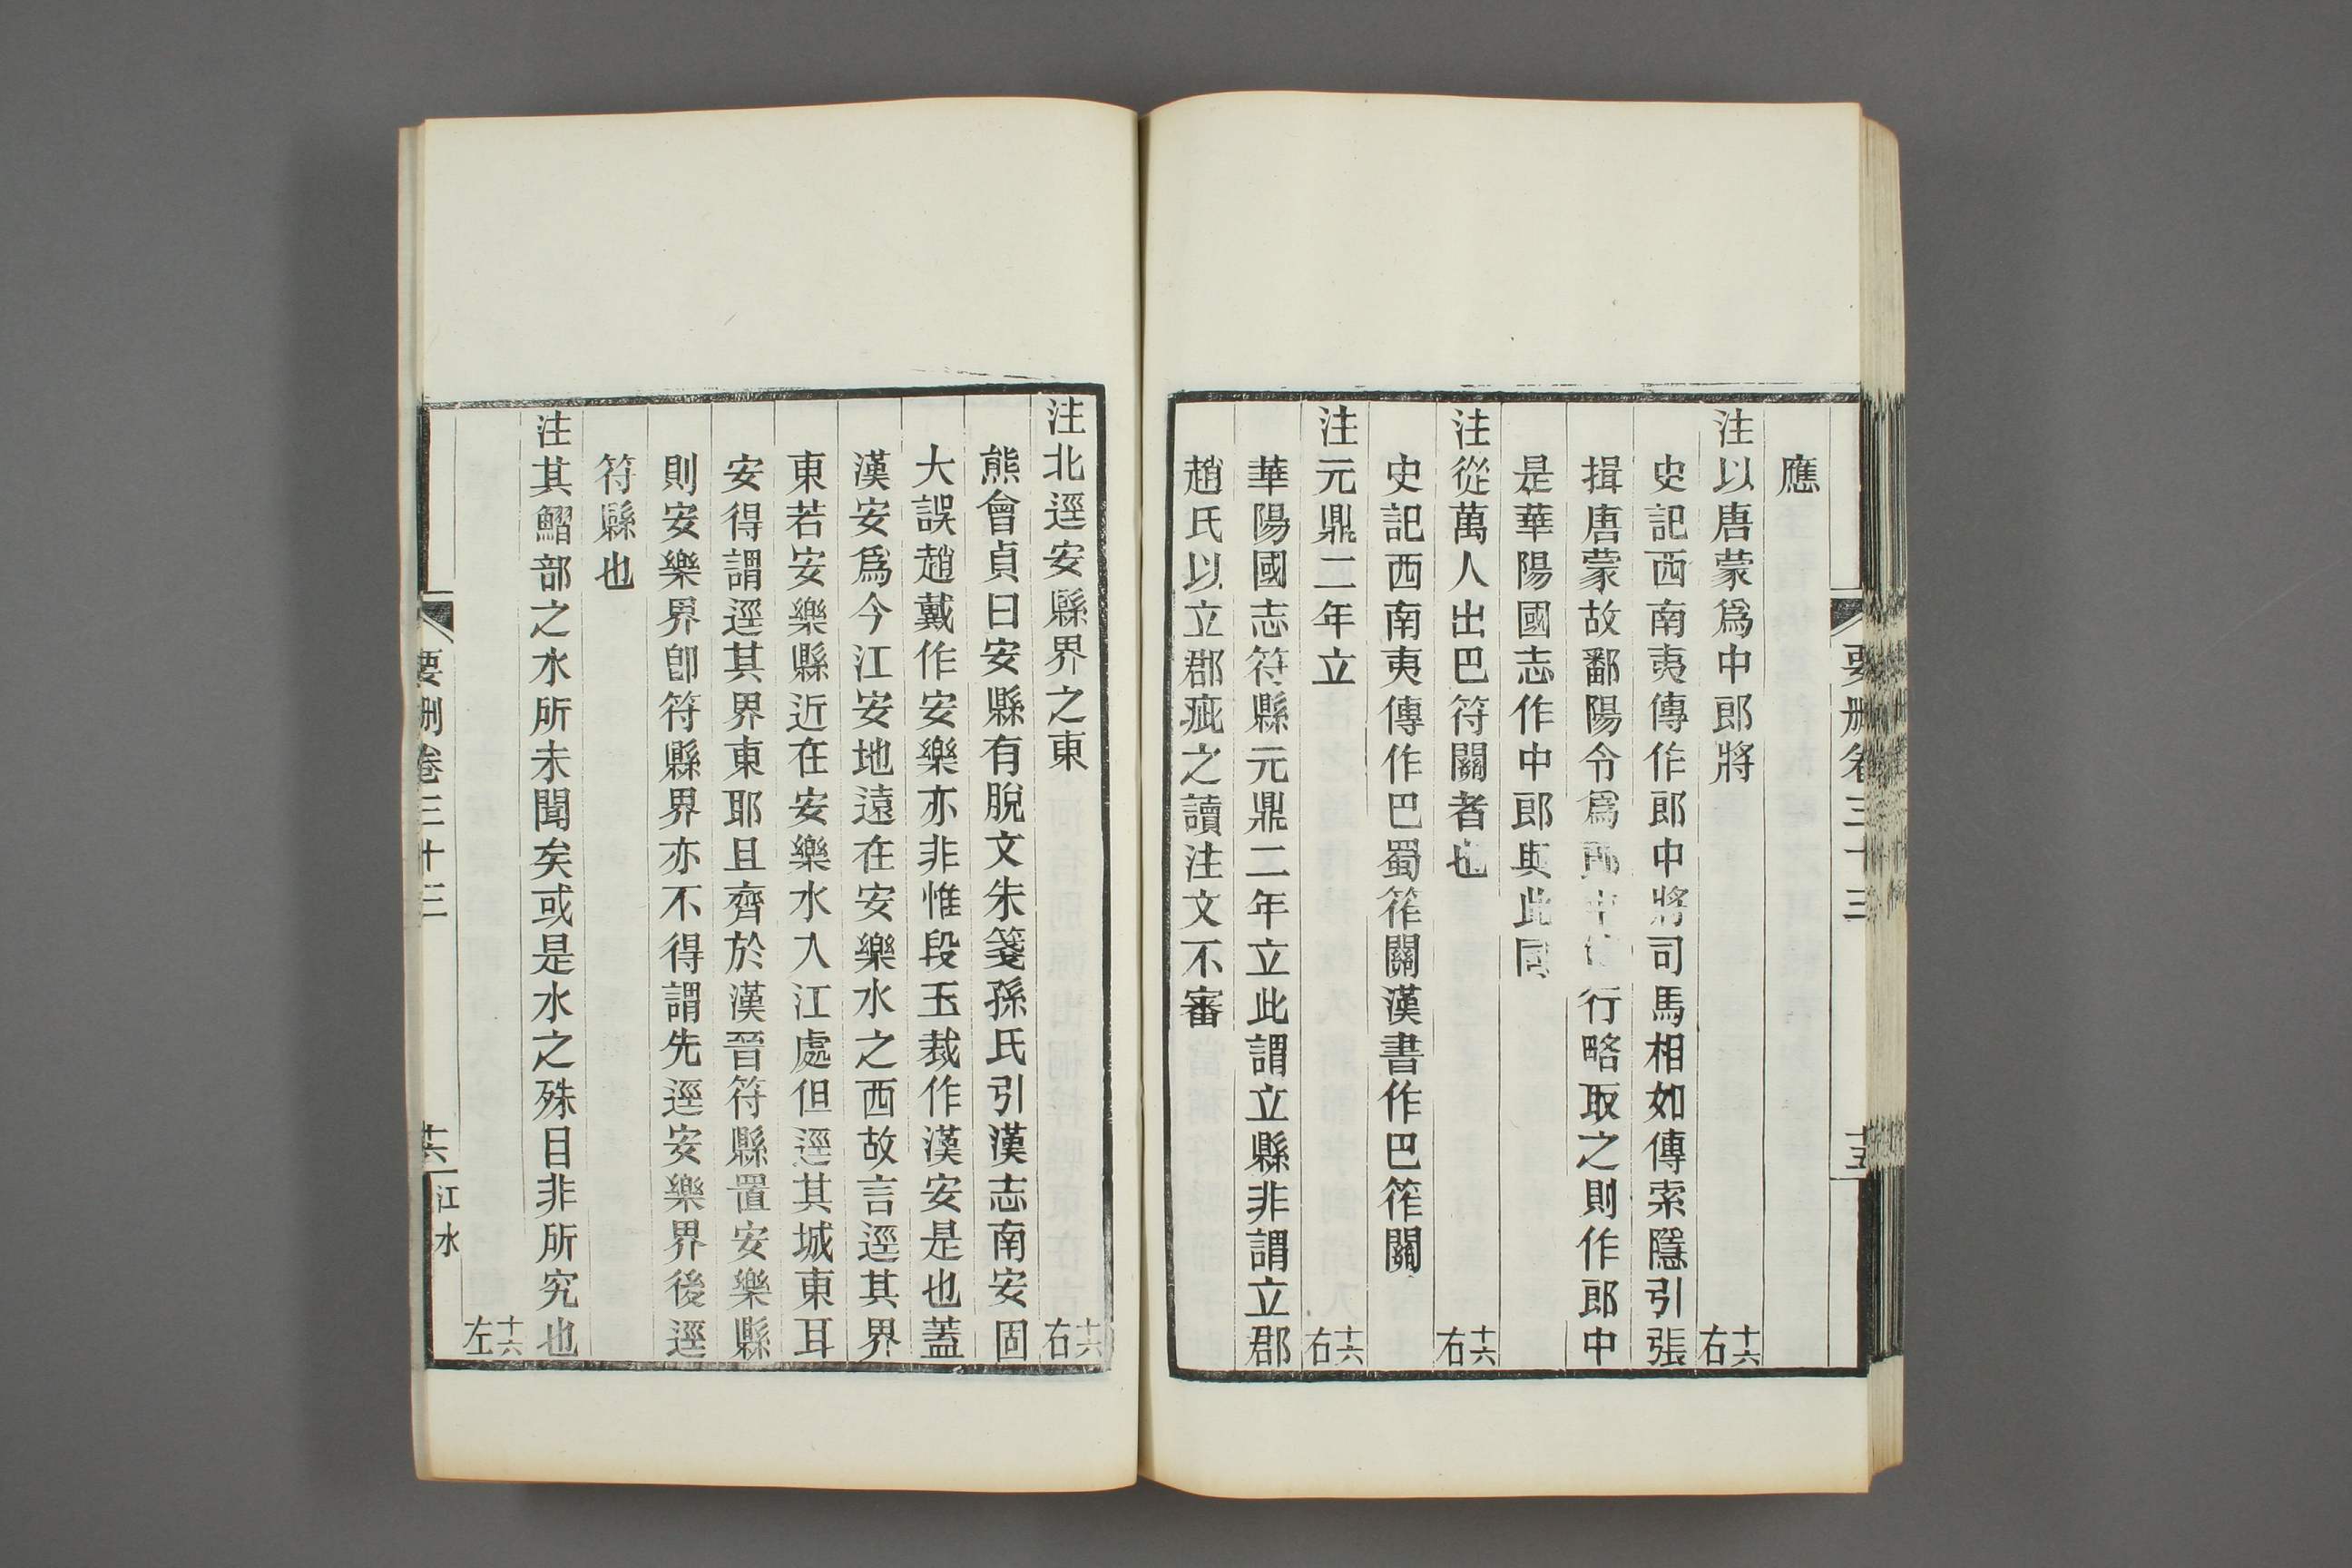 應
注以唐蒙爲中郎將 十六右
史記西南夷傳作郎中將司馬相如傳索隱引張
揖唐蒙故鄱陽令爲郎中使行略取之則作郎中
是華陽國志作中郎與此同
注從萬人出巴符關者也 十六右
史記西南夷傳作巴蜀筰關漢書作巴筰關
注元鼎二年立 十六右
華陽國志符縣元鼎二年立此謂立縣非謂立郡
趙氏以立郡疵之讀注文不審
要刪卷三十三 十五
注北逕安縣界之東 十六右
熊會貞曰安縣有脫文朱箋孫氏引漢志南安固
大誤趙戴作安樂亦非惟段玉裁作漢安是也蓋
漢安爲今江安地遠在安樂水之西故言逕其界
東若安樂縣近在安樂水入江處但逕其城東耳
安得謂逕其界東耶且齊於漢晉符縣置安樂縣
則安樂界卽符縣界亦不得謂先逕安樂界後逕
符縣也
注其鰼部之水所未聞矣或是水之殊目非所究也
十六左
要刪卷三十三 十六 江水